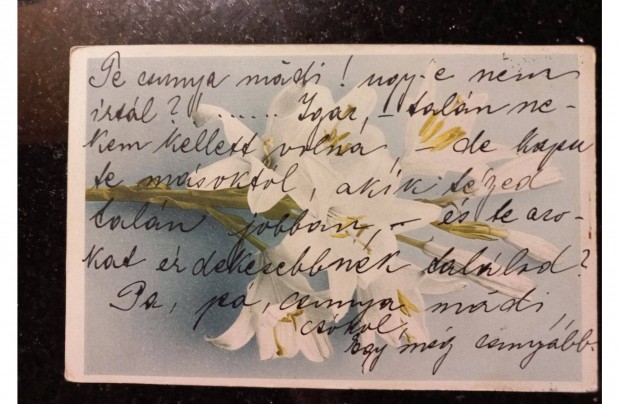 Te csunya mádi! ugy-e nem
irtál? ...... Igaz, – talán ne-
kem kellett volna, – de kapu
te másoktol, akik tézed
talán jobban, – és te azo-
kat érdekesebbnek találod?
Pa, pa, csunya mádi,
csókol,
Egy még csunyább.